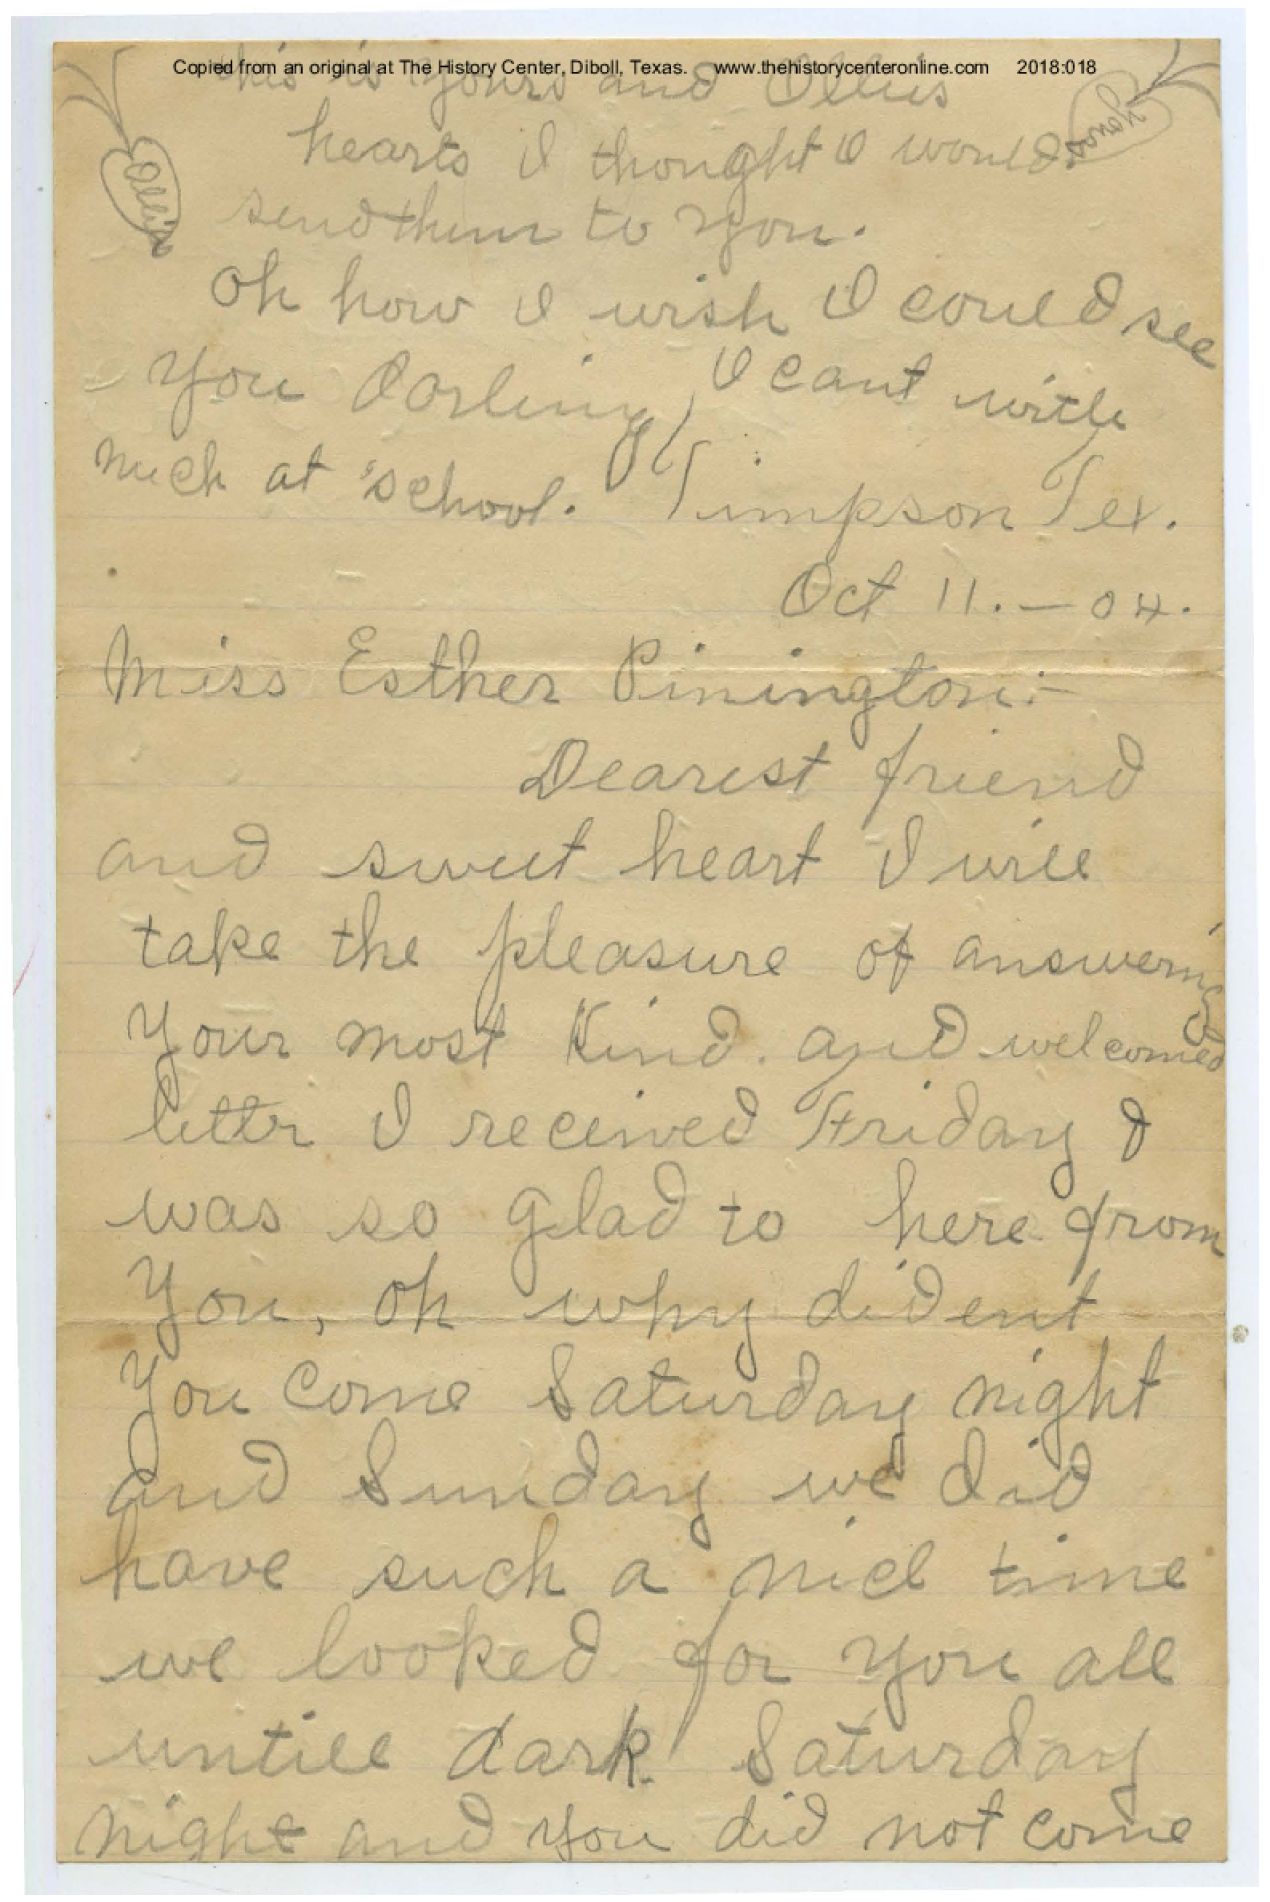 Copied from an original at The History Center, Diboll, Texas. www.thehistorycenteronline.com 2018:018
this is yours and Ollies
hearts I thought I would
send them to you.
Ollie
Yours
Oh how I wish I could see
you darling, I cant write
much at school.
Timpson Tex.
Oct 11. – 04.
Miss Esther Pinington:–
Dearest friend
and sweet heart I will
take the pleasure of answering
your most kind. and welcomed
letter I received Friday I
was so glad to here from
you, oh why dident
you come Saturday night
and Sunday we did
have such a nice time
we looked for you all
untill dark Saturday
night and you did not come